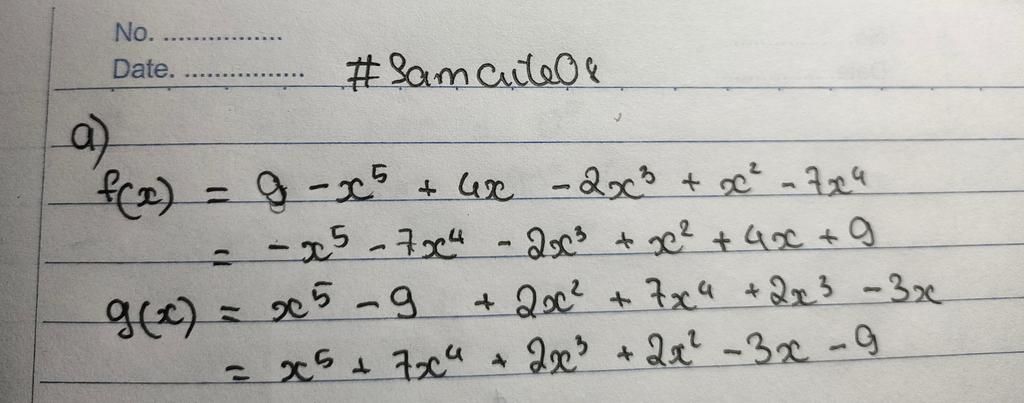 No. ................
Date. ................ #Samcute08
a)
f(x) = 9 - x⁵ + 4x - 2x³ + x² - 7x⁴
= - x⁵ - 7x⁴ - 2x³ + x² + 4x + 9
g(x) = x⁵ - 9 + 2x² + 7x⁴ + 2x³ - 3x
= x⁵ + 7x⁴ + 2x³ + 2x² - 3x - 9